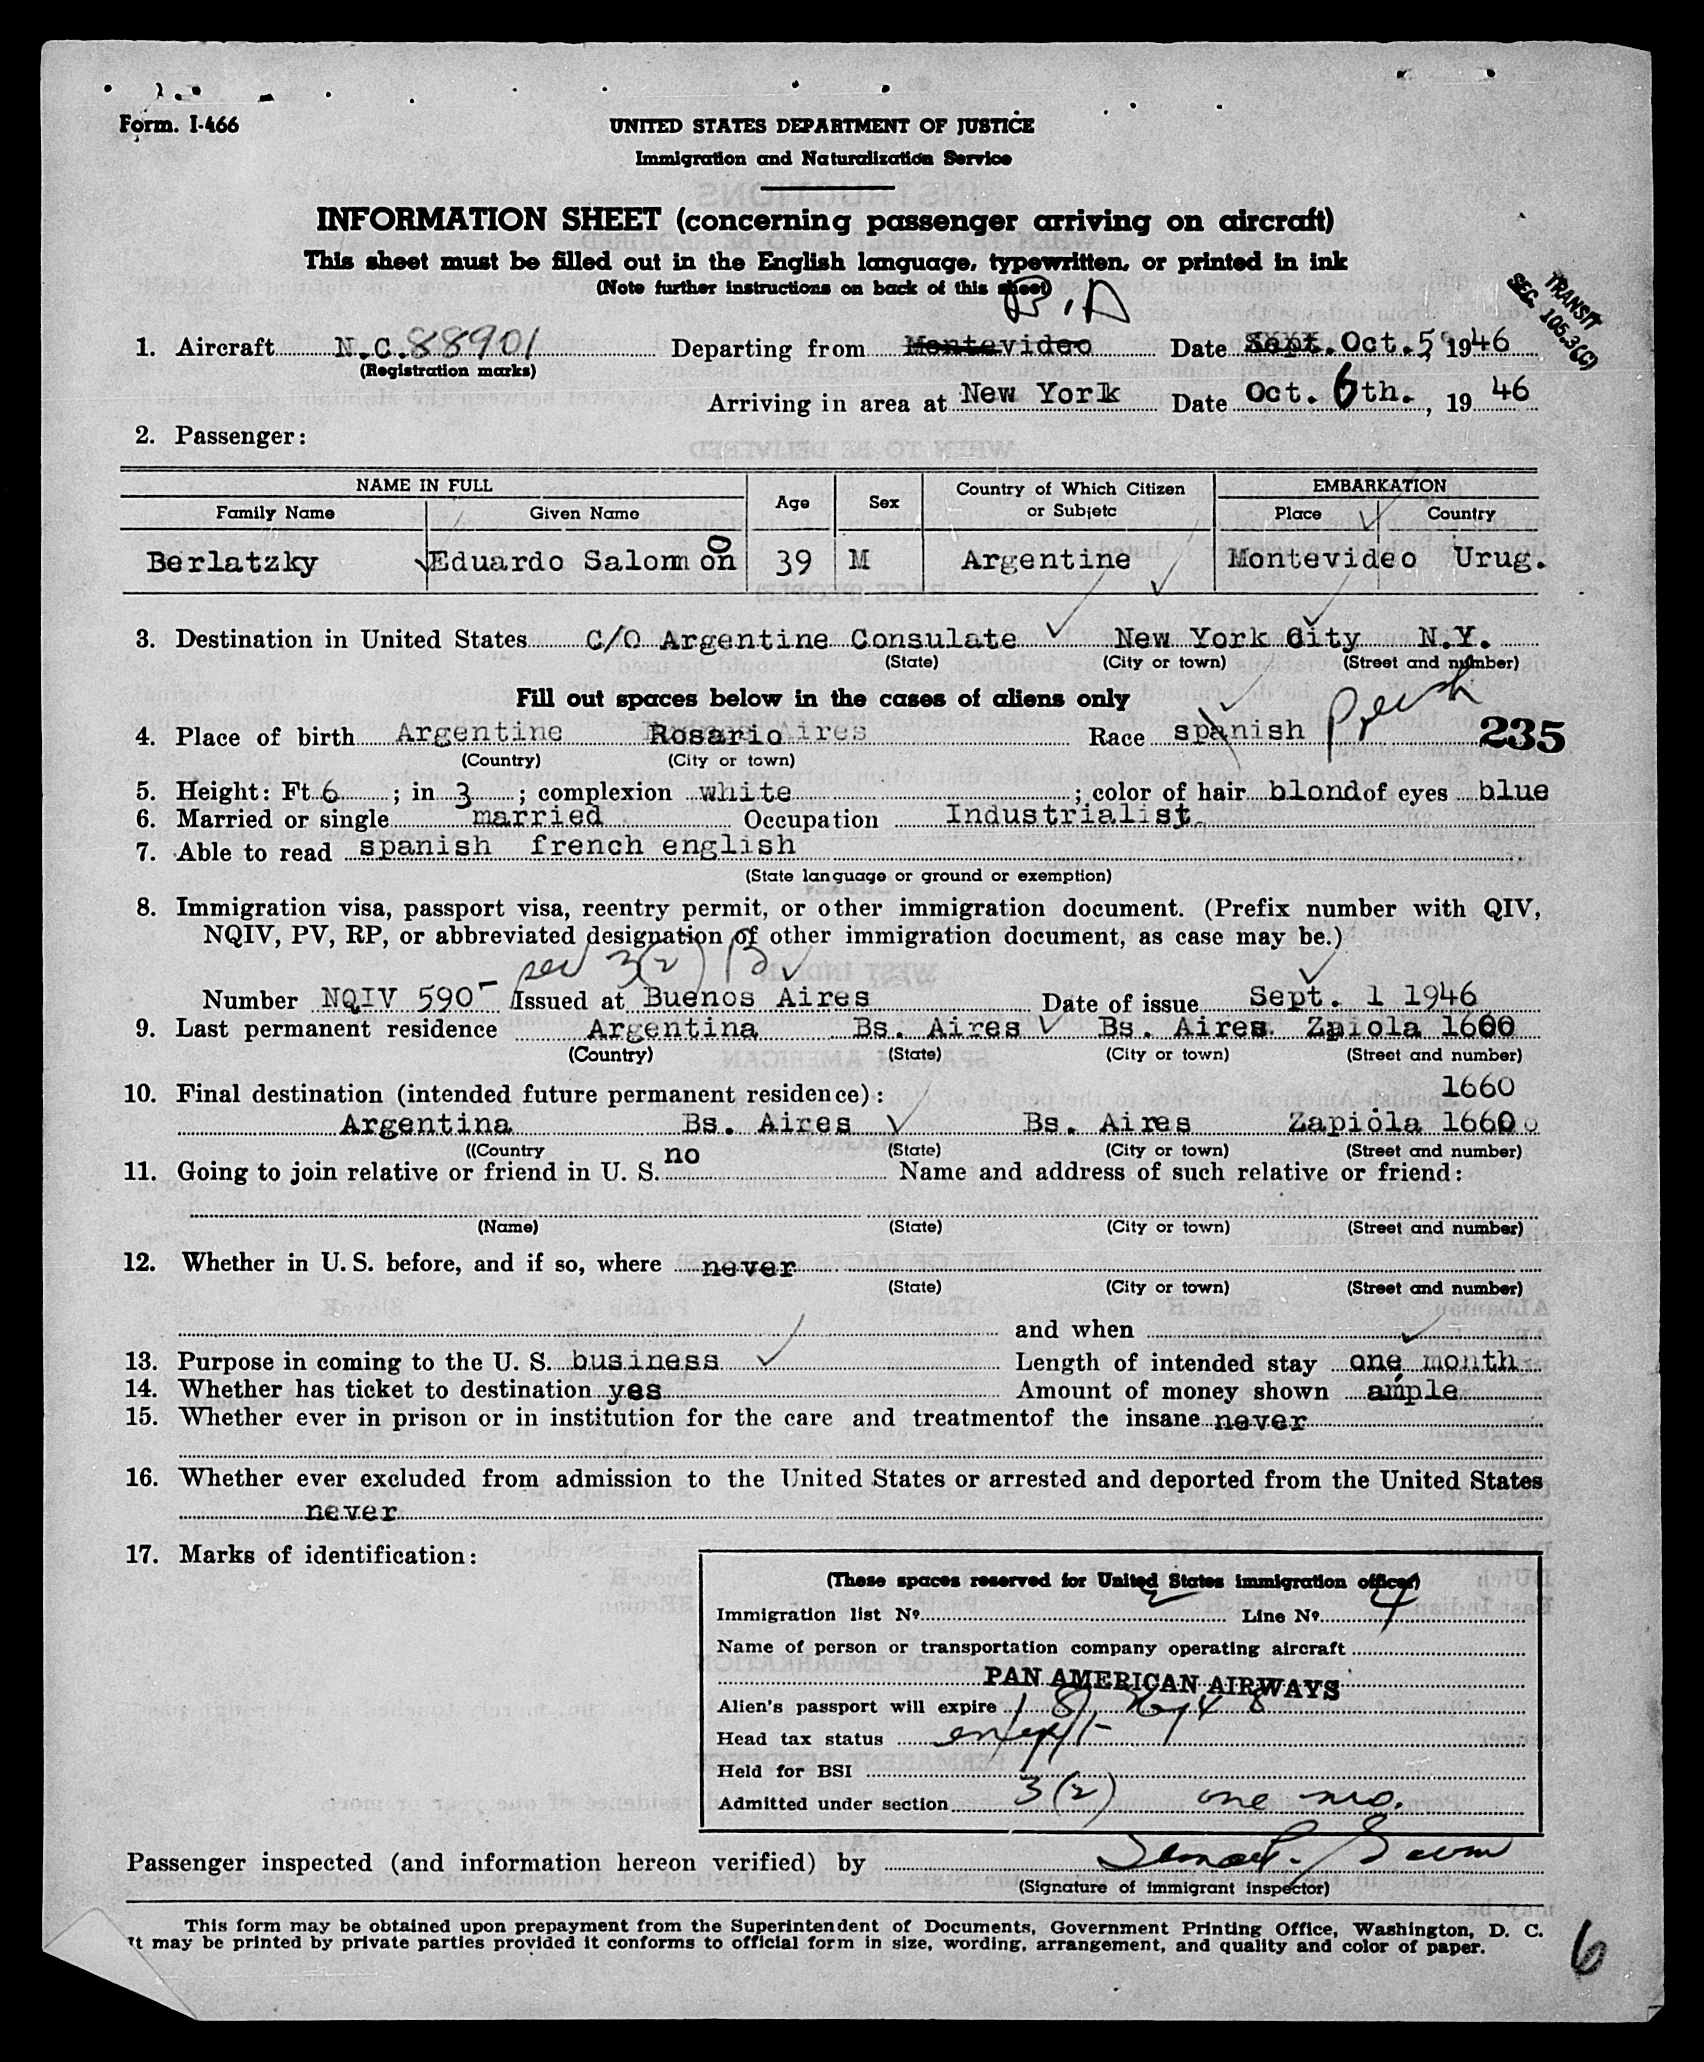 Form. I-466
UNITED STATES DEPARTMENT OF JUSTICE
Immigration and Naturalization Service
INFORMATION SHEET (concerning passenger arriving on aircraft)
This sheet must be filled out in the English language, typewritten, or printed in ink
(Note further instructions on back of this sheet)
B.A
TRANSIT
SEC. 105.3(C)
1. Aircraft N.C.88901 Departing from Montevideo Date Sept. Oct.5, 1946
(Registration marks)
Arriving in area at New York Date Oct. 6th., 19 46
2. Passenger:
NAME IN FULL Age Sex Country of Which Citizen or Subjetc EMBARKATION
Family Name Given Name Place Country
Berlatzky Eduardo Salomon 39 M Argentine Montevideo Urug.
3. Destination in United States C/O Argentine Consulate New York City N.Y.
(State) (City or town) (Street and number)
Fill out spaces below in the cases of aliens only
4. Place of birth Argentine Rosario Race spanish 235
(Country) (City or town)
5. Height: Ft 6 ; in 3 ; complexion white ; color of hair blond of eyes blue
6. Married or single married Occupation Industrialist
7. Able to read spanish french english
(State language or ground or exemption)
8. Immigration visa, passport visa, reentry permit, or other immigration document. (Prefix number with QIV,
NQIV, PV, RP, or abbreviated designation of other immigration document, as case may be.)
3(2)
Number NQIV 590 Issued at Buenos Aires Date of issue Sept. 1 1946
9. Last permanent residence Argentina Bs. Aires Bs. Aires. Zpiola 1600
(Country) (State) (City or town) (Street and number)
10. Final destination (intended future permanent residence): 1660
Argentina Bs. Aires Bs. Aires Zapiola 1660
((Country (State) (City or town) (Street and number)
11. Going to join relative or friend in U. S. no Name and address of such relative or friend:
(Name) (State) (City or town) (Street and number)
12. Whether in U. S. before, and if so, where never
(State) (City or town) (Street and number)
and when
13. Purpose in coming to the U. S. business Length of intended stay one month
14. Whether has ticket to destination yes Amount of money shown ample
15. Whether ever in prison or in institution for the care and treatmentof the insane never
16. Whether ever excluded from admission to the United States or arrested and deported from the United States
never
17. Marks of identification:
(These spaces reserved for United States immigration officer)
Immigration list No. 2 Line No. 4
Name of person or transportation company operating aircraft
PAN AMERICAN AIRWAYS
Alien's passport will expire
Head tax status exempt
Held for BSI
Admitted under section 3(2) one mo.
Passenger inspected (and information hereon verified) by
(Signature of immigrant inspector)
This form may be obtained upon prepayment from the Superintendent of Documents, Government Printing Office, Washington, D. C.
It may be printed by private parties provided it conforms to official form in size, wording, arrangement, and quality and color of paper.
6